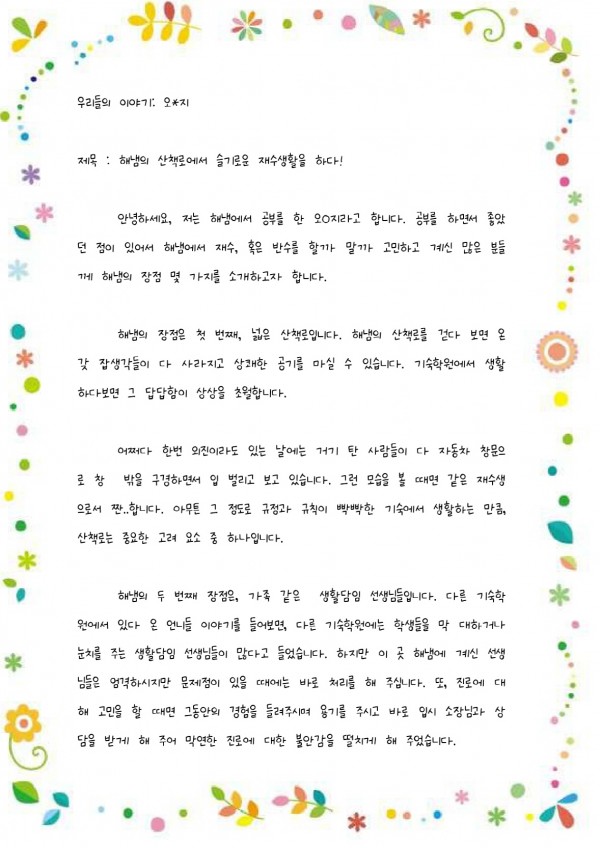 우리들의 이야기: 오*지
제목 : 해냄의 산책로에서 슬기로운 재수생활을 하다!
안녕하세요, 저는 해냄에서 공부를 한 오O지라고 합니다. 공부를 하면서 좋았
던 점이 있어서 해냄에서 재수, 혹은 반수를 할까 말까 고민하고 계신 많은 분들
께 해냄의 장점 몇 가지를 소개하고자 합니다.
해냄의 장점은 첫 번째, 넓은 산책로입니다. 해냄의 산책로를 걷다 보면 온
갖 잡생각들이 다 사라지고 상쾌한 공기를 마실 수 있습니다. 기숙학원에서 생활
하다보면 그 답답함이 상상을 초월합니다.
어쩌다 한번 외진이라도 있는 날에는 거기 탄 사람들이 다 자동차 창문으
로 창 밖을 구경하면서 입 벌리고 보고 있습니다. 그런 모습을 볼 때면 같은 재수생
으로서 짠..합니다. 아무튼 그 정도로 규정과 규칙이 빡빡한 기숙에서 생활하는 만큼,
산책로는 중요한 고려 요소 중 하나입니다.
해냄의 두 번째 장점은, 가족 같은 생활담임 선생님들입니다. 다른 기숙학
원에서 있다 온 언니들 이야기를 들어보면, 다른 기숙학원에는 학생들을 막 대하거나
눈치를 주는 생활담임 선생님들이 많다고 들었습니다. 하지만 이 곳 해냄에 계신 선생
님들은 엄격하시지만 문제점이 있을 때에는 바로 처리를 해 주십니다. 또, 진로에 대
해 고민을 할 때면 그동안의 경험을 들려주시며 용기를 주시고 바로 입시 소장님과 상
담을 받게 해 주어 막연한 진로에 대한 불안감을 떨치게 해 주었습니다.